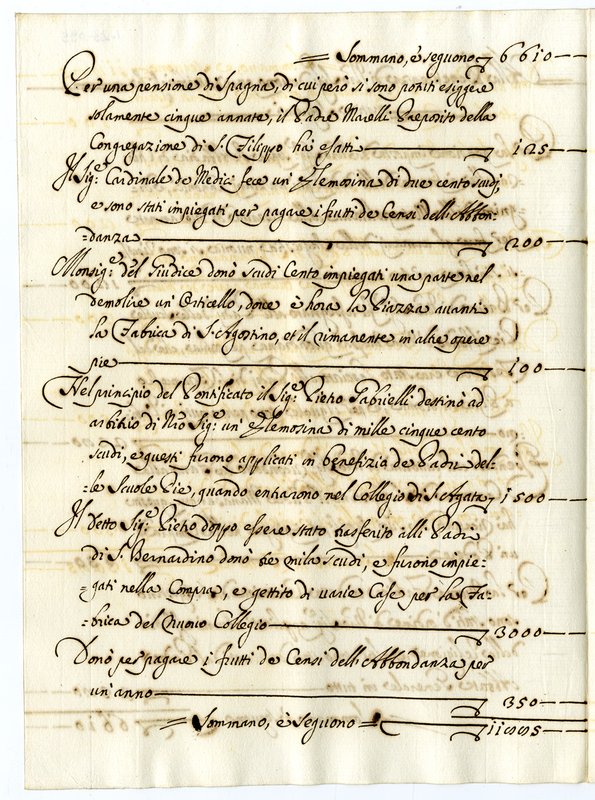 = Sommano, è seguono 6610
Per una pensione di Spagna, di cui però si sono potuti esiggere
solamente cinque annate, il Padre Marelli Preposito della
Congregazione di S. Filippo hà esatti 125
Il Sig.e Cardinale de Medici fece un' Elemosina di due cento scudi,
e sono stati impiegati per pagare i frutti de Censi dell'Abbon-
=danza 200
Monsig.e del Giudice donò scudi Cento impiegati una parte nel
demolire un' Orticello, dove è hora la Piazza avanti
la Fabrica di S. Agostino, et il rimanente in altre opere
pie 100
Nel principio del Pontificato il Sig.e Pietro Gabrielli destinò ad
arbitrio di Nro Sig.e un' Elemosina di mille cinque cento
scudi, e questi furono applicati in benefizia de Padri del-
=le Scuole Pie, quando entrarono nel Collegio di S. Agata 1500
Il detto Sig.e Pietro doppo essere stato trasferito alli Padri
di S. Bernardino donò tre mila scudi, e furono impie=
=gati nella Compra, e gettito di varie Case per la Fa=
=brica del nuovo Collegio 3000
Donò per pagare i frutti de Censi dell'Abbondanza per
un'anno 350
= Sommano, è seguono =